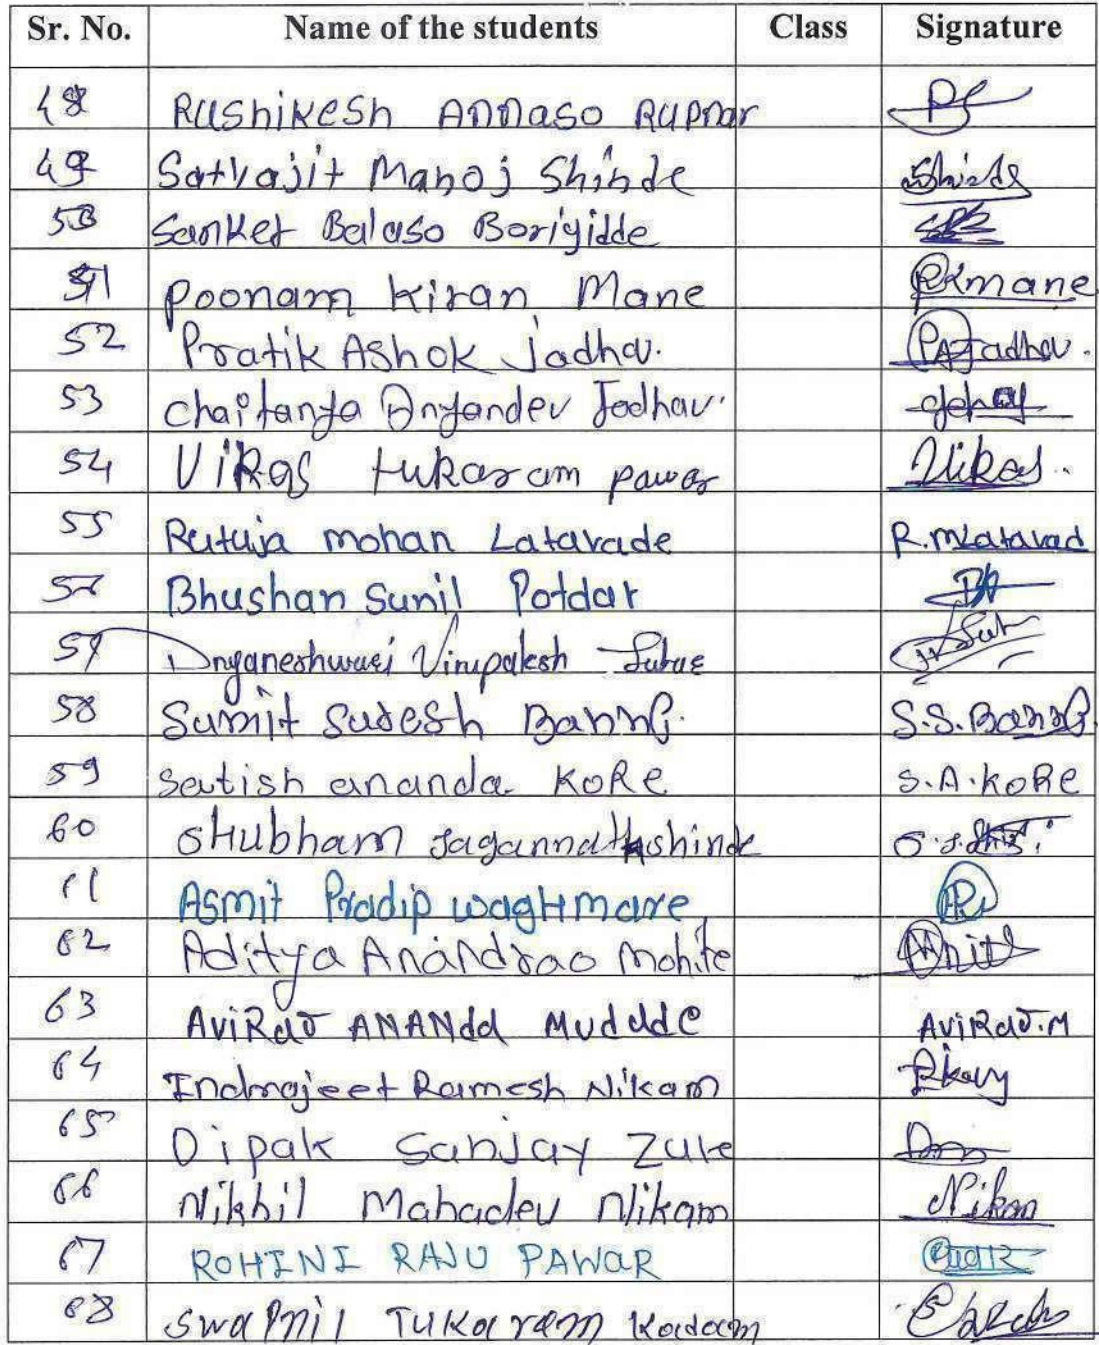 Sr. No. Name of the students Class Signature
48 Rushikesh Annaso Rupnar
49 Satvajit Manoj Shinde Shinde
50 Sanket Balaso Borigidde
51 Poonam Kiran Mane PKmane
52 Pratik Ashok Jadhav. PAJadhav.
53 Chaitanya Dnyandev Jadhav.
54 Vikas tukaram pawar Vikas.
55 Rutuja mohan Latavade R.mLatavad
Bhushan Sunil Potdar
57 Dnyaneshwari Virupaksh Sutar
58 Sumit Suresh S.S.
59 Satish ananda KoRe S.A.KoRe
60 SHubham Jagannath shinde
61 Asmit Pradip wagHmare
62 Aditya Anandrao Mohite
63 AviRaJ ANANdd Muddde AviRaJ.M
64 Indrajeet Ramesh Nikam
65 Dipak Sanjay Zule
66 Nikhil Mahadev Nikam Nikam
67 ROHINI RAJU PAWAR
68 Swapnil Tukaram Kadam